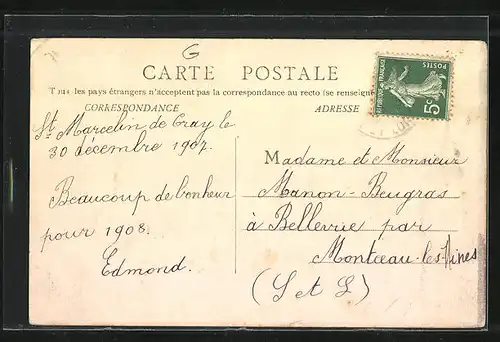 G
CARTE POSTALE
Tous les pays étrangers n'acceptent pas la correspondance au recto (se renseigner
CORRESPONDANCE
ADRESSE
REPUBLIQUE FRANÇAISE
POSTES
5c
St Marcelin de Cray le
30 décembre 1907.
Beaucoup de bonheur
pour 1908.
Edmond.
Madame et Monsieur
Manon-Beugras
à Bellevue par
Montceau-les-Mines
(S et L)